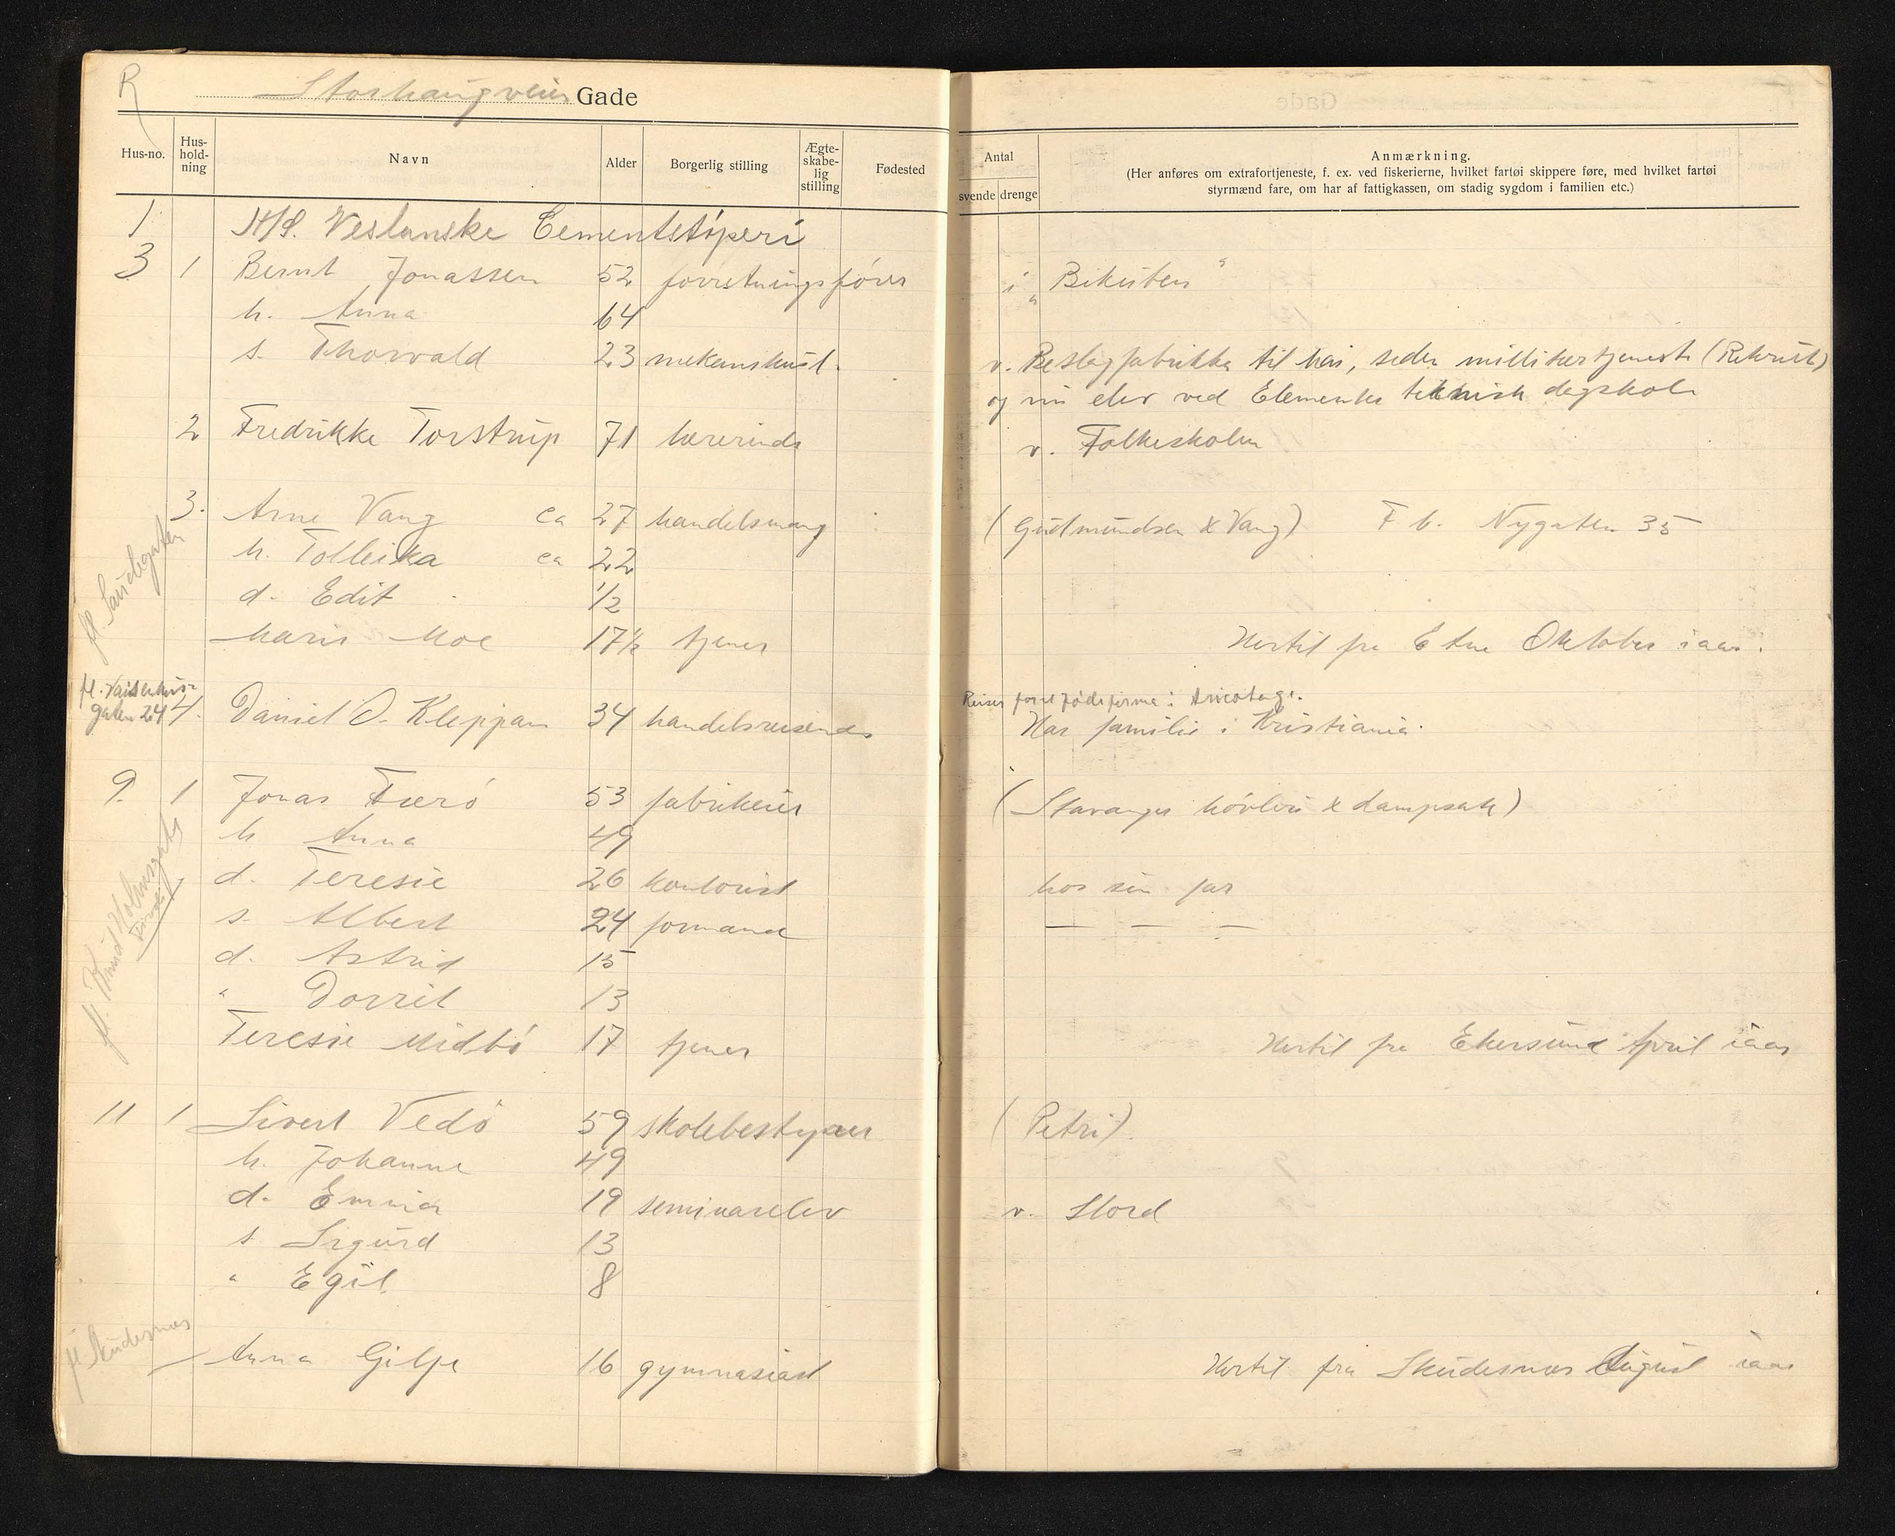 R
Storhaugveien Gade
Hus-no. Hus-hold-ning Navn Alder Borgerlig stilling Ægte-skabe-lig stilling Fødested
Antal svende drenge
Anmærkning.
(Her anføres om extrafortjeneste, f. ex. ved fiskerierne, hvilket fartøi skippere føre, med hvilket fartøi
styrmænd fare, om har af fattigkassen, om stadig sygdom i familien etc.)
1 A/S. Vestlanske Cementstøperi
3 1 Bernt Jonassen 52 forretningsfører i "Bikuben"
h. Anna 64
s. Thorvald 23 v. Beslagfabrikken til mai, siden millitærtjeneste (Rekrut)
og nu elev ved Elementær teknisk dagskole
2 Fredrikke Torstrup 71 lærerinde v. Folkeskolen
fl. Saudegaten
3. Arne Vang ca 27 handelsmand (Gudmundsen & Vang) F b. Nygaten 35
h. Tolleika ca 22
d. Edit 1/2
Marie Moe 17½ tjener Hertil fra Etne Oktober iaar.
fl. Vaisenhus-
gaten 24
4. Daniel O. Kleppan 34 handelsreisende Reiser for et firma i tricotage.
Har familie i Kristiania.
9. 1 Jonas Færø 53 fabrikeier (Stavanger høvleri & dampsak)
fl. Knud Holmsgate
h Anna 49
d. Teresie 26 kontorist hos sin far
s. Albert 24 formand — — —
d. Astrid 15
" Dorrit 13
Teresie Midbø 17 tjener Hertil fra Ekersund April iaar
11 1 Sivert Vedø 59 skolebestyrer (Petri).
h. Johanne 49
d. Emma 19 seminarelev v. Stord
s Sigurd 13
" Egil 8
fl. Skudesnæs
Anna Gilje 16 gymnasiast Hertil fra Skudesnæs August iaar